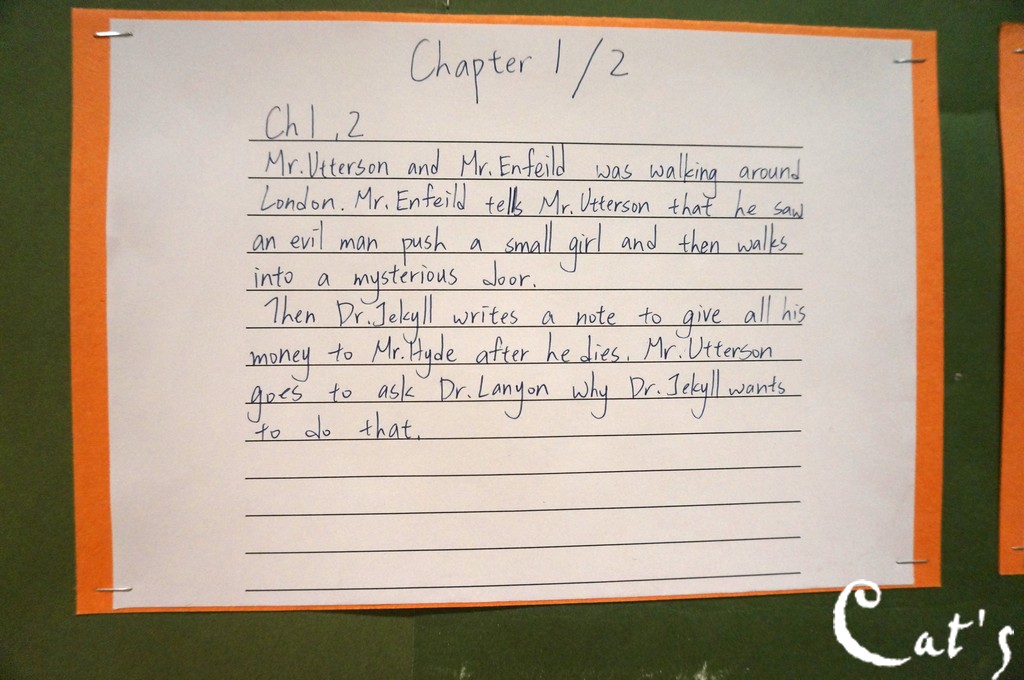 Chapter 1/2
Ch1,2
Mr.Utterson and Mr.Enfeild was walking around
London. Mr.Enfeild tells Mr.Utterson that he saw
an evil man push a small girl and then walks
into a mysterious door.
Then Dr.Jekyll writes a note to give all his
money to Mr.Hyde after he dies. Mr.Utterson
goes to ask Dr.Lanyon why Dr.Jekyll wants
to do that.
Cat's